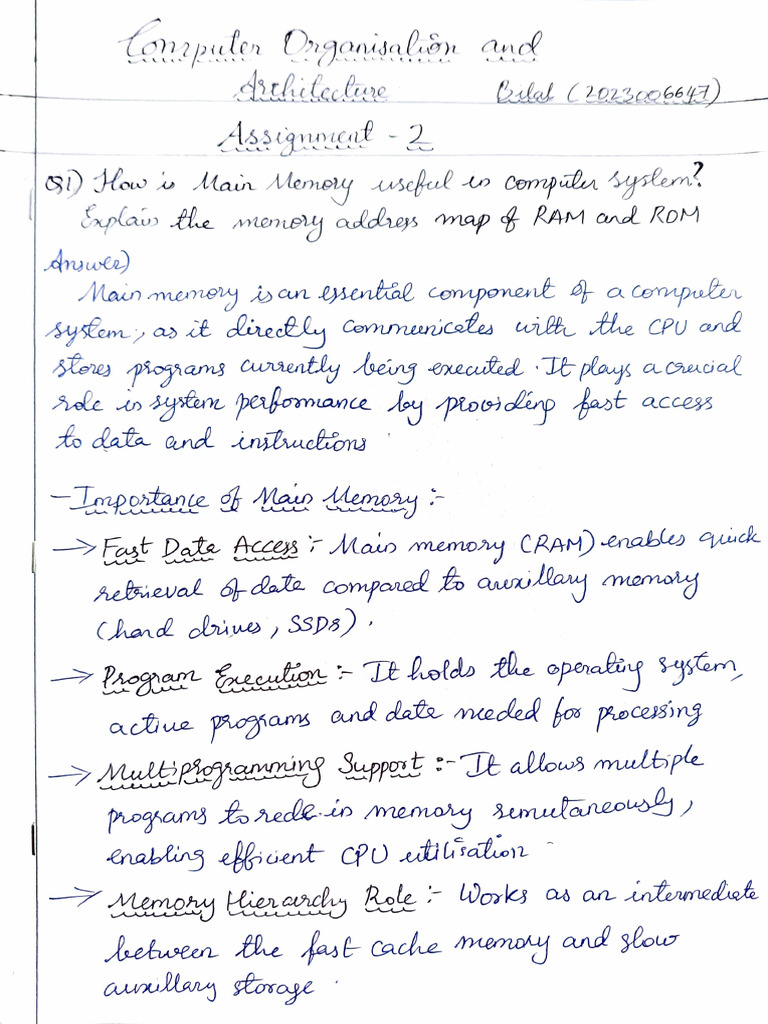 Computer Organisation and
Architecture Bilal (2023006647)
Assignment - 2
Q1) How is Main Memory useful in computer system?
Explain the memory address map of RAM and ROM
Answer)
Main memory is an essential component of a computer
system, as it directly communicates with the CPU and
stores programs currently being executed. It plays a crucial
role in system performance by providing fast access
to data and instructions
- Importance of Main Memory :-
→ Fast Data Access :- Main memory (RAM) enables quick
retrieval of data compared to auxillary memory
(hard drives, SSDs).
→ Program Execution :- It holds the operating system,
active programs and data needed for processing
→ Multiprogramming Support :- It allows multiple
programs to in memory semutaneously,
enabling efficient CPU utilisation
→ Memory Hierarchy Role :- Works as an intermediate
between the fast cache memory and slow
auxillary storage.